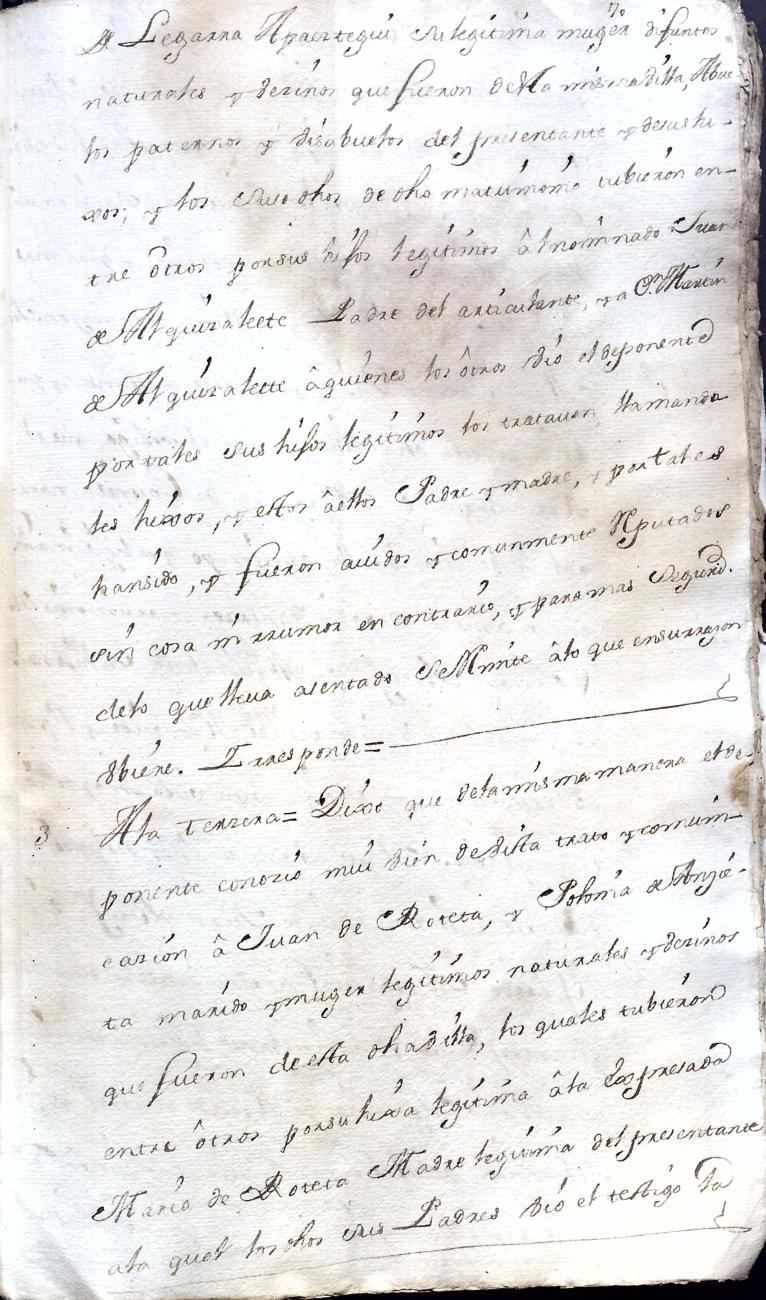 7
de Legarra Apaeztegui su legitima muger difuntos
naturales y vezinos que fueron desta misma villa, Abue-
los paternos y visabuelos del presentante y de sus hi-
xos; y los suso dhos de dho matrimonio tubieron en-
tre ôtros por sus hijos legitimos â lnominado Juan
de Alquizalete Padre del articulante, y a Dn Martin
de Alquizalette â quienes los ôtros vió el deponente
por tales sus hijos legitimos los tratavan, llamando
les hixos, y estos â ellos Padre y madre, y por tales
han sido, y fueron avidos y comunmente Rputados
sin cosa ni rrumor en contrario, y para mas Segurid.
delo que lleva asentado se Rmite âlo que en su rrazon
vbiere. Y rresponde=
3 A la terzera= Dixo que dela misma manera el de-
ponente conozió mui vien de vista trato y comuni-
cazion â Juan de Roteta, y Polonia de Anzie-
ta marido y muger legitimos naturales y vezinos
que fueron de esta dha villa, los quales tubieron
entre ôtros por su hixa legitima â la Expresada
Maria de Roteta Madre legitima del presentante
ala qual los dhos sus Padres vió el testigo la